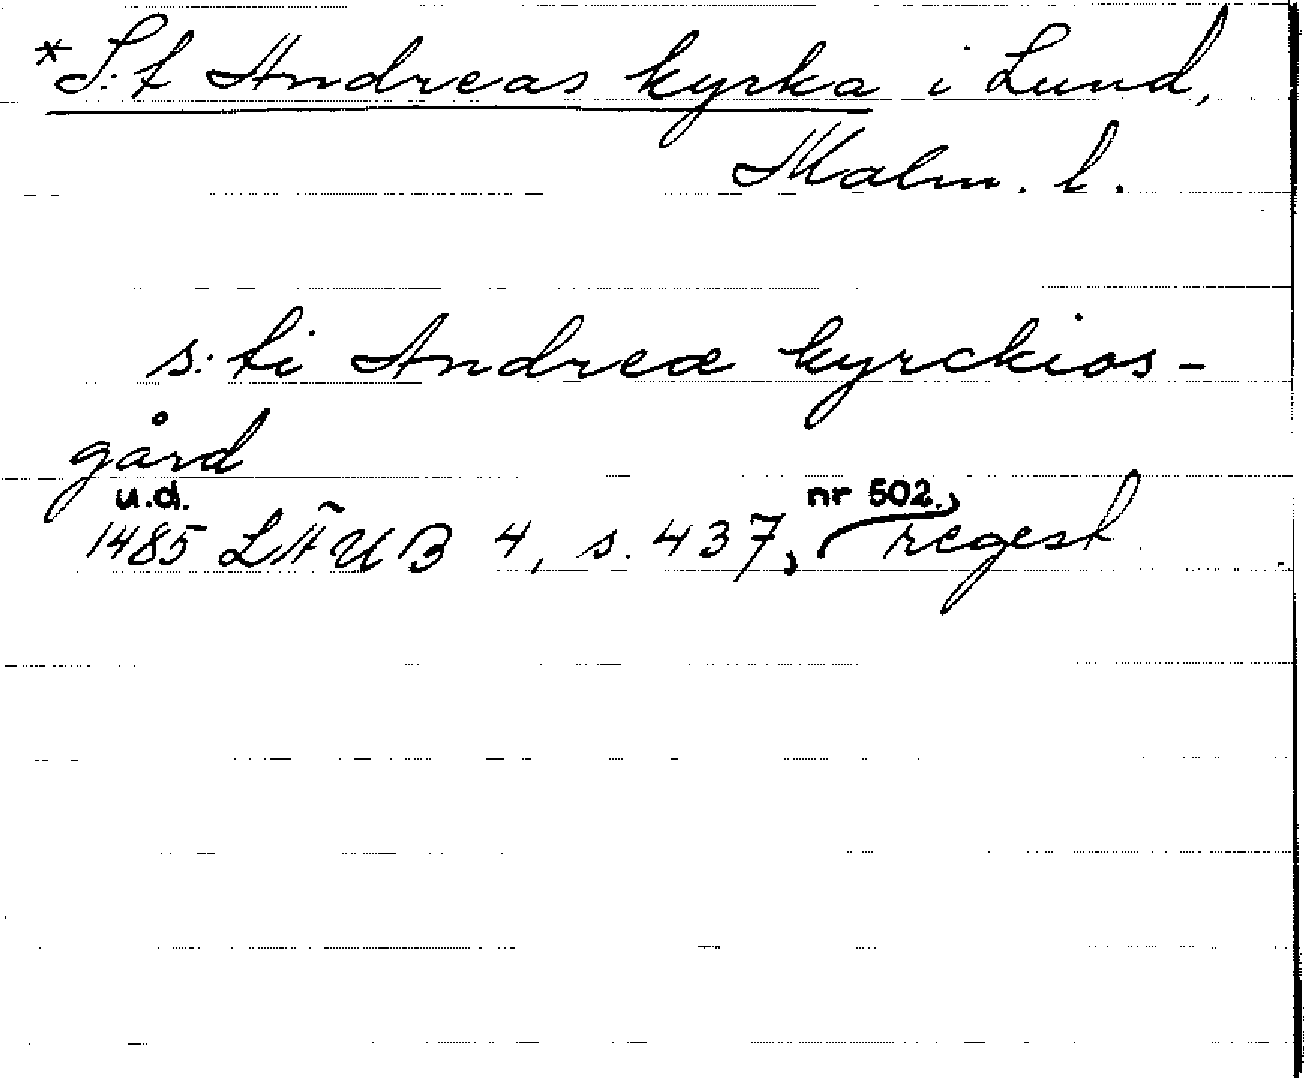 *S:t Andreas kyrka i Lund,
Malm. l.
s:ti Andreæ kyrckios-
gård
u.d. nr 502.,
1485 LÄUB 4, s. 437, regest